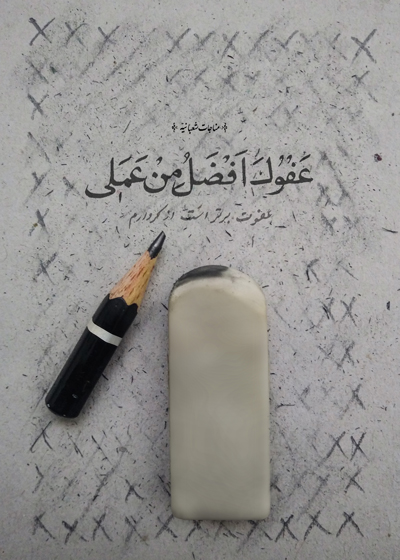 ﴿مناجات شعبانیه﴾
عَفْوُكَ اَفْضَلُ مِنْ عَمَلی
عفوت برتر است از کردارم